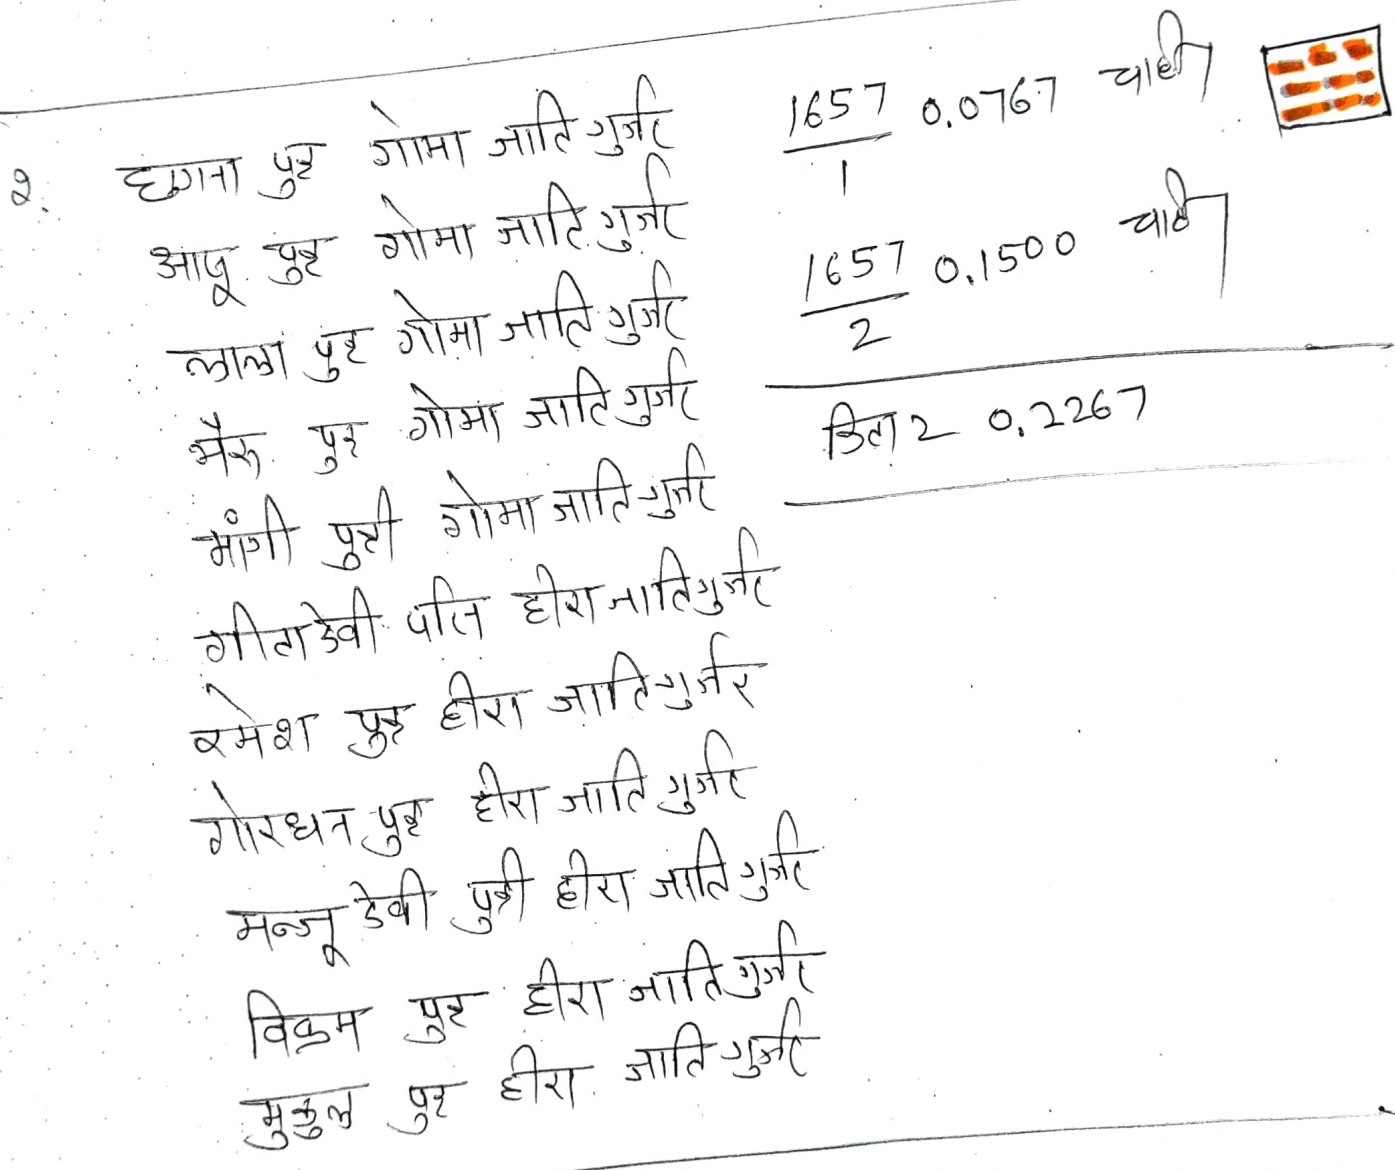 २. छगना पुत्र गोमा जाति गुर्जर
आपू पुत्र गोमा जाति गुर्जर
लाला पुत्र गोमा जाति गुर्जर
भैरू पुत्र गोमा जाति गुर्जर
मांगी पुत्री गोमा जाति गुर्जर
गीता देवी पत्नि हीरा जाति गुर्जर
रमेश पुत्र हीरा जाति गुर्जर
गोरधन पुत्र हीरा जाति गुर्जर
मन्जू देवी पुत्री हीरा जाति गुर्जर
विक्रम पुत्र हीरा जाति गुर्जर
मुकुल पुत्र हीरा जाति गुर्जर
1657/1 0.0767 चाही
1657/2 0.1500 चाही
किता 2 0.2267